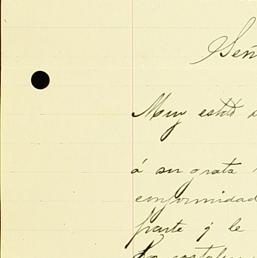 Señ
Muy estdo
á su grata
conformidad
parte q le